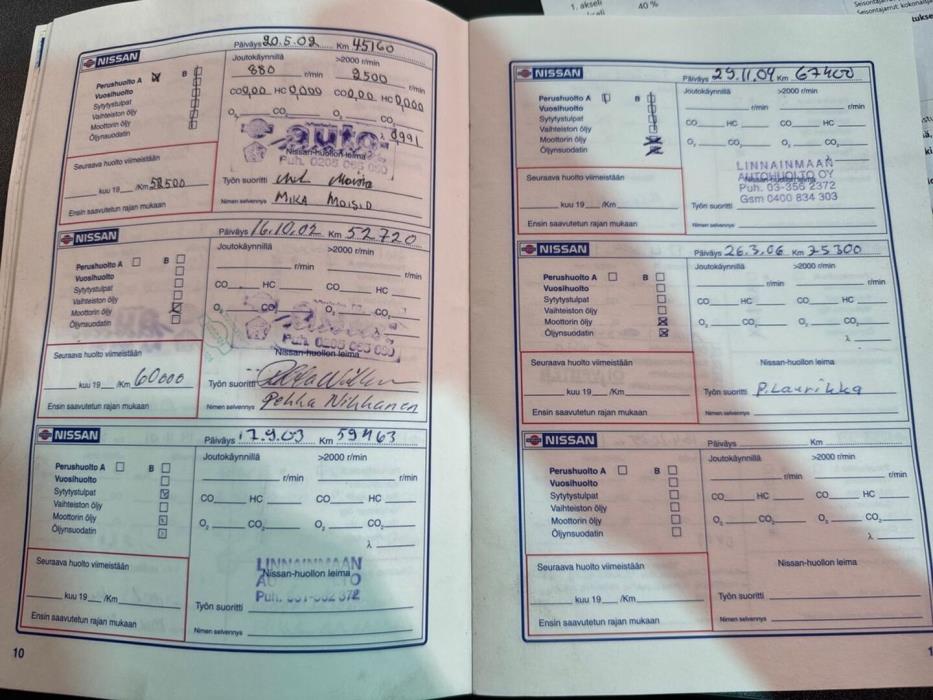 1. akseli 40 %
NISSAN
Päiväys 20.5.02 Km 45160
Perushuolto A B
Vuosihuolto
Sytytystulpat
Vaihteiston öljy
Moottorin öljy
Öljynsuodatin
Joutokäynnillä >2000 r/min
880 r/min 2500
CO 0,00 HC 0,000 CO 0,00 HC 0,000
O₂ CO₂ O₂ CO₂
λ
auto
Nissan-huollon leima
Puh. 0205 065 050
Seuraava huolto viimeistään
kuu 19 /Km 58500
Ensin saavutetun rajan mukaan
Työn suoritti
Nimen selvennys MIKA
NISSAN
Päiväys 16.10.02 Km 52720
Perushuolto A B
Vuosihuolto
Sytytystulpat
Vaihteiston öljy
Moottorin öljy
Öljynsuodatin
Joutokäynnillä >2000 r/min
r/min r/min
CO HC CO HC
O₂ CO₂ O₂ CO₂
λ
Nissan-huollon leima
Seuraava huolto viimeistään
kuu 19 /Km 60000
Ensin saavutetun rajan mukaan
Työn suoritti
Nimen selvennys Pekka Nikkanen
NISSAN
Päiväys 17.9.03 Km 59463
Perushuolto A B
Vuosihuolto
Sytytystulpat
Vaihteiston öljy
Moottorin öljy
Öljynsuodatin
Joutokäynnillä >2000 r/min
r/min r/min
CO HC CO HC
O₂ CO₂ O₂ CO₂
λ
LINNAINMAAN
Nissan-huollon leima
Seuraava huolto viimeistään
kuu 19 /Km
Ensin saavutetun rajan mukaan
Työn suoritti
Nimen selvennys
10
NISSAN
Päiväys 29.11.04 Km 67400
Perushuolto A B
Vuosihuolto
Sytytystulpat
Vaihteiston öljy
Moottorin öljy
Öljynsuodatin
Joutokäynnillä >2000 r/min
r/min r/min
CO HC CO HC
O₂ CO₂ O₂ CO₂
LINNAINMAAN
AUTOHUOLTO OY
Puh. 03-356 2372
Gsm 0400 834 303
Seuraava huolto viimeistään
kuu 19 /Km
Ensin saavutetun rajan mukaan
Työn suoritti
Nimen selvennys
NISSAN
Päiväys 26.3.06 Km 75300
Perushuolto A B
Vuosihuolto
Sytytystulpat
Vaihteiston öljy
Moottorin öljy
Öljynsuodatin
Joutokäynnillä >2000 r/min
r/min r/min
CO HC CO HC
O₂ CO₂ O₂ CO₂
λ
Nissan-huollon leima
Seuraava huolto viimeistään
kuu 19 /Km
Ensin saavutetun rajan mukaan
Työn suoritti P. Laurikka
Nimen selvennys
NISSAN
Päiväys Km
Perushuolto A B
Vuosihuolto
Sytytystulpat
Vaihteiston öljy
Moottorin öljy
Öljynsuodatin
Joutokäynnillä >2000 r/min
r/min r/min
CO HC CO HC
O₂ CO₂ O₂ CO₂
λ
Nissan-huollon leima
Seuraava huolto viimeistään
kuu 19 /Km
Ensin saavutetun rajan mukaan
Työn suoritti
Nimen selvennys